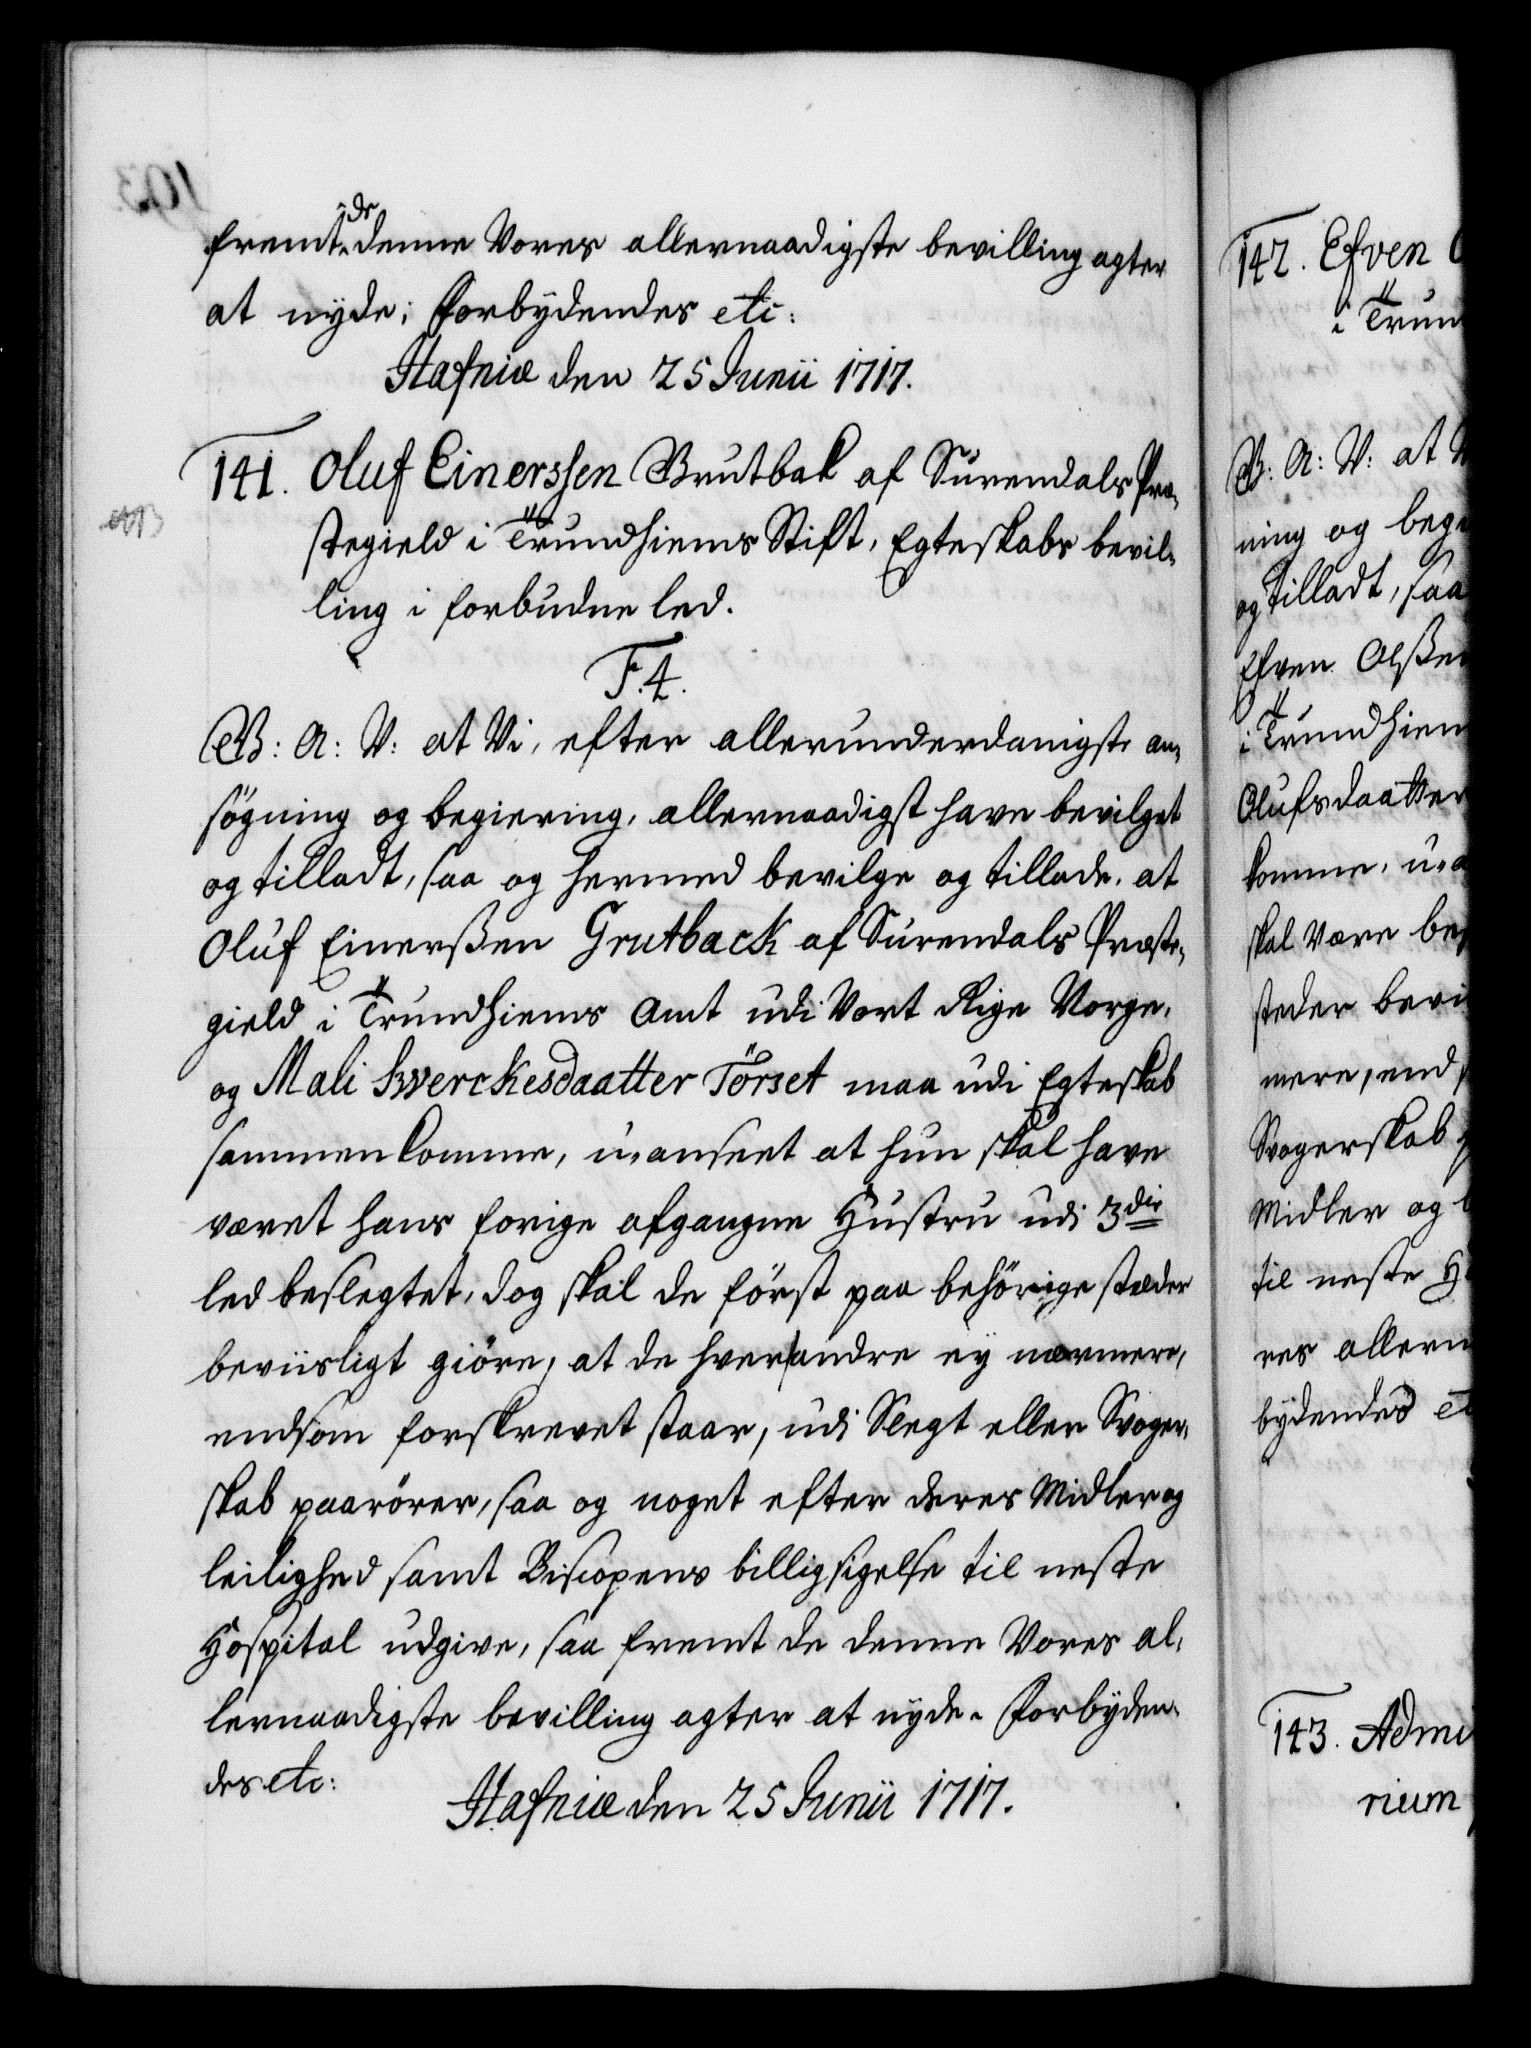 fremt de denne Vores allernaadigste bevilling agter
at nyde; Forbydendes etc:
Hafniæ den 25 Junii 1717.
141. Oluf Einerssen Grutbak af Surendals Præ-
stegield i Trundhiems Stift, Egteskabs bevil-
ling i forbudne led.
F. 4.
G: A: V: at Vi, efter allerunderdanigste an-
søgning og begiering, allernaadigst have bevilget
og tilladt, saa og hermed bevilge og tillade, at
Oluf Einerßen Grutback af Surendals Præste-
gield i Trundhiems Amt udi Vort Rige Norge,
og Mali Sverckesdaatter Törset maa udi Egteskab
sammenkomme, u-anseet at hun skal have
været hans forige afgangne Hustru udi 3die
led beslegtet, dog skal de först paa behörige stæder
beviisligt giöre, at de hverandre ey nærmere,
endsom forskrevet staar, udi Slegt eller Svoger-
skab paarörer, saa og noget efter deres Midler og
leilighed samt Biscopens billigsigelse til neste
Hospital udgive, saa fremt de denne Vores al-
lernaadigste bevilling agter at nyde. Forbyden-
des etc:
Hafniæ den 25 Junii 1717.
142. Efven
i Trun
G: A: V: at
ning og bege
og tilladt, saa
Efven Olßen
i Trundhiem
Olufsdaatter
komme, u-a
skal være be
steder bevi
mere, end
Svogerskab
Midler og
til neste H
res allern
bydendes et
143. Admi
rium